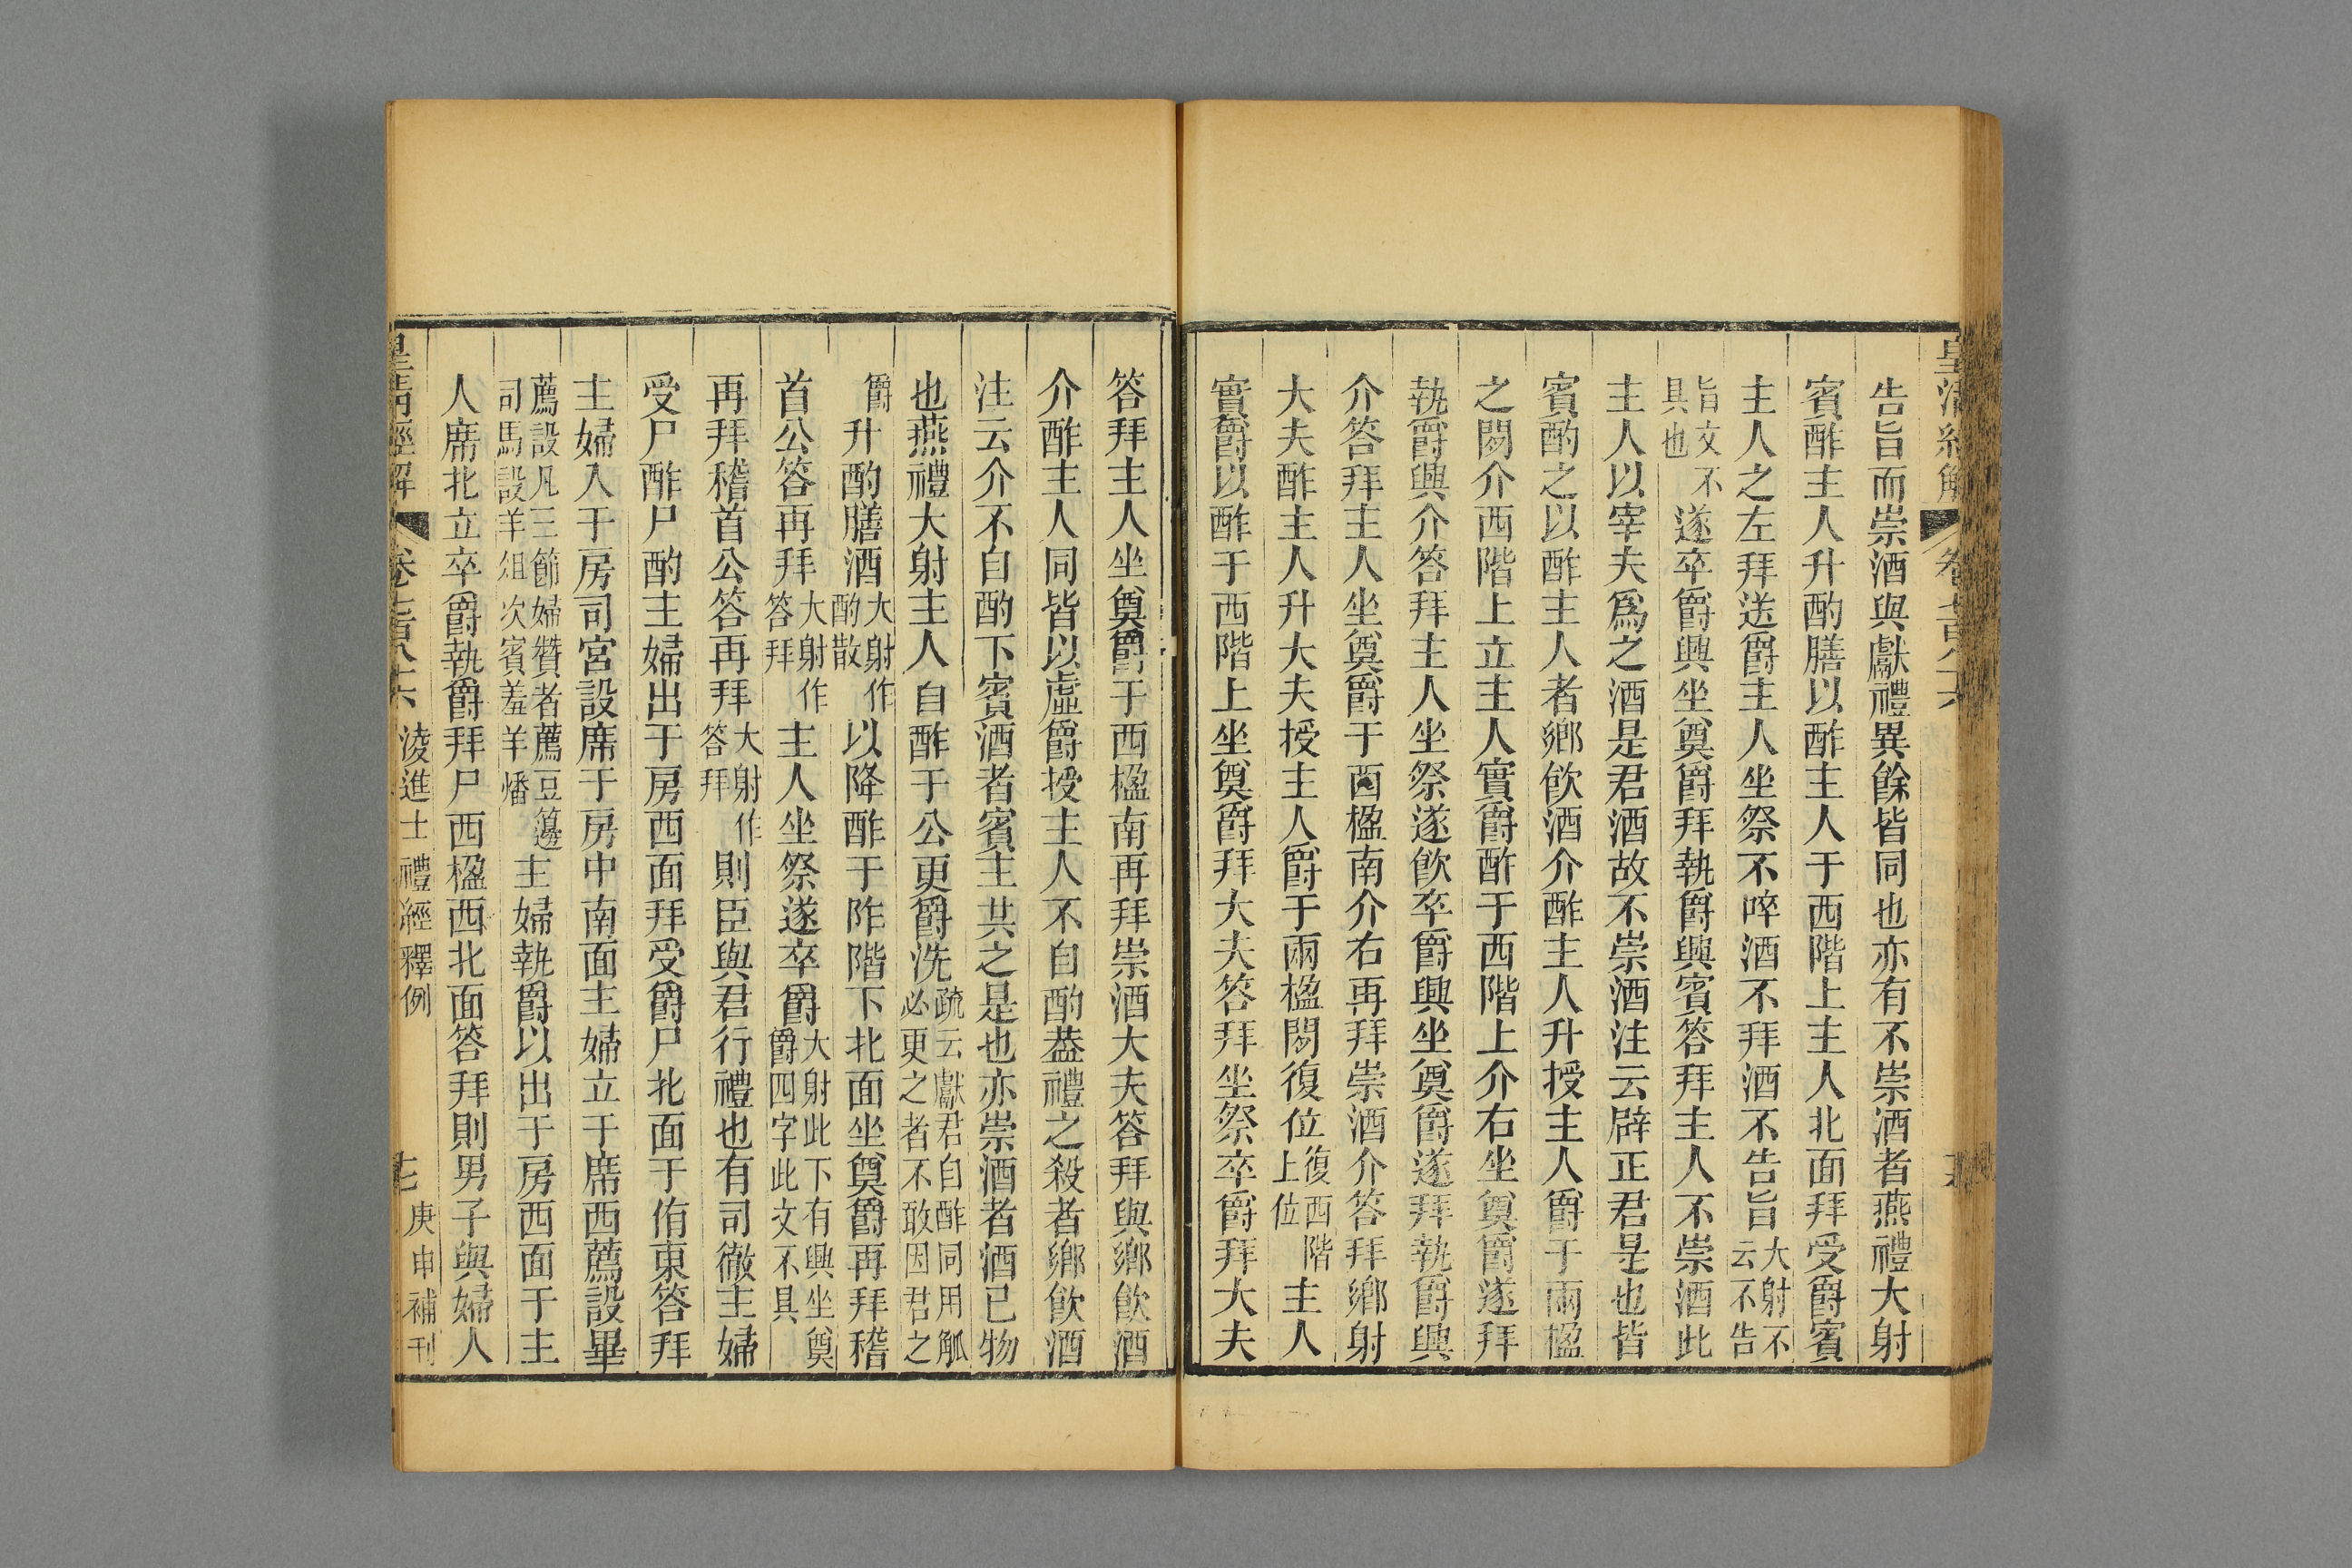 皇清經解
卷七百八十六
告旨而崇酒與獻禮異餘皆同也亦有不崇酒者燕禮大射
賓酢主人升酌膳以酢主人于西階上主人北面拜受爵賓
主人之左拜送爵主人坐祭不啐酒不拜酒不告旨大射不云不告
旨文不具也遂卒爵興坐奠爵拜執爵興賓答拜主人不崇酒此
主人以宰夫爲之酒是君酒故不崇酒注云辟正君是也皆
賓酌之以酢主人者鄉飲酒介酢主人升授主人爵于兩楹
之閒介西階上立主人實爵酢于西階上介右坐奠爵遂拜
執爵興介答拜主人坐祭遂飲卒爵興坐奠爵遂拜執爵興
介答拜主人坐奠爵于西楹南介右再拜崇酒介答拜鄉射
大夫酢主人升大夫授主人爵于兩楹閒復位復西階上位主人
實爵以酢于西階上坐奠爵拜大夫答拜坐祭卒爵拜大夫
答拜主人坐奠爵于西楹南再拜崇酒大夫答拜與鄉飲酒
介酢主人同皆以虛爵授主人不自酌葢禮之殺者鄉飲酒
注云介不自酌下賓酒者賓主共之是也亦崇酒者酒己物
也燕禮大射主人自酢于公更爵洗疏云獻君自酢同用觚必更之者不敢因君之
爵升酌膳酒大射作酌散以降酢于阼階下北面坐奠爵再拜稽
首公答再拜大射作答拜主人坐祭遂卒爵大射此下有興坐奠爵四字此文不具
再拜稽首公答再拜大射作答拜則臣與君行禮也有司徹主婦
受尸酢尸酌主婦出于房西面拜受爵尸北面于侑東答拜
主婦入于房司宮設席于房中南面主婦立于席西薦設畢
薦設凡三節婦贊者薦豆籩司馬設羊俎次賓羞羊燔主婦執爵以出于房西面于主
人席北立卒爵執爵拜尸西楹西北面答拜則男子與婦人
皇清經解
卷七百八十六
淩進士禮經釋例
七
庚申補刊